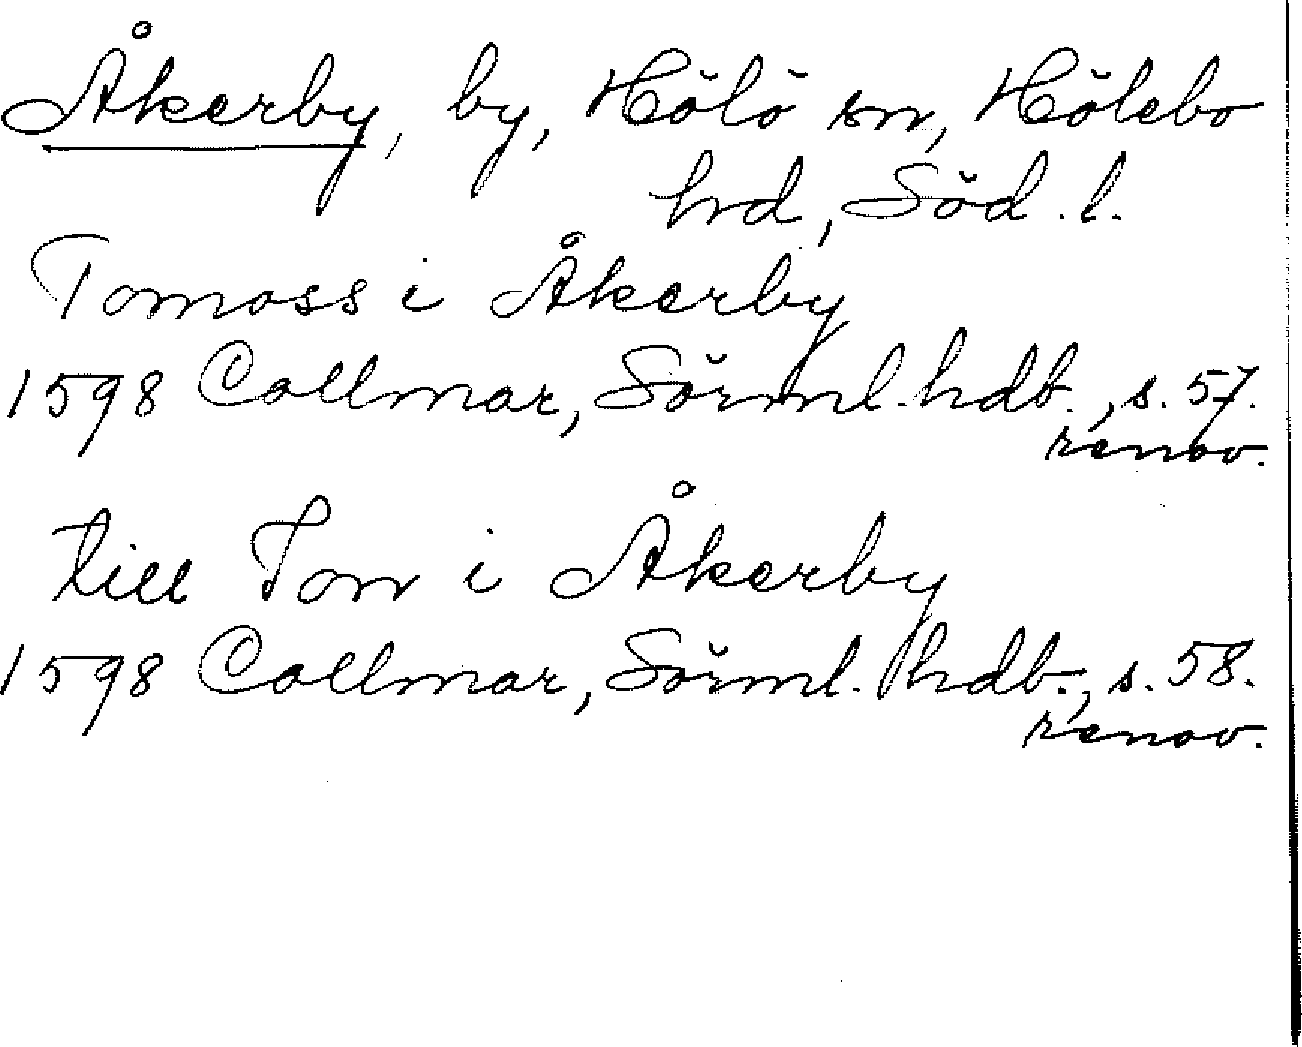 Åkerby, by, Hölö sn, Hölebo
hrd, Söd. l.
Tomass i Åkerby
1598 Collmar, Sörml. hdb., s. 57.
renov.
till Tom i Åkerby
1598 Collmar, Sörml. hdb., s. 58.
renov.